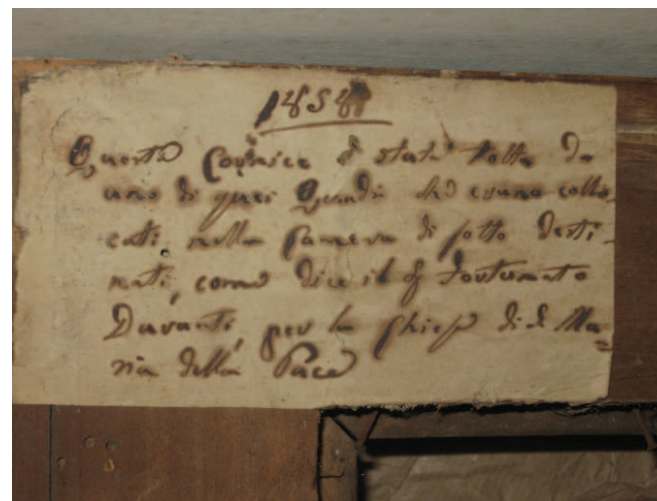 1858
Questa Cornice è stata tolta da
uno di quei Quadri che erano collo-
cati nella Camera di sotto desti-
nati, come dice il Fortunato
Duranti, per la Chiesa di S. Ma=
ria della Pace